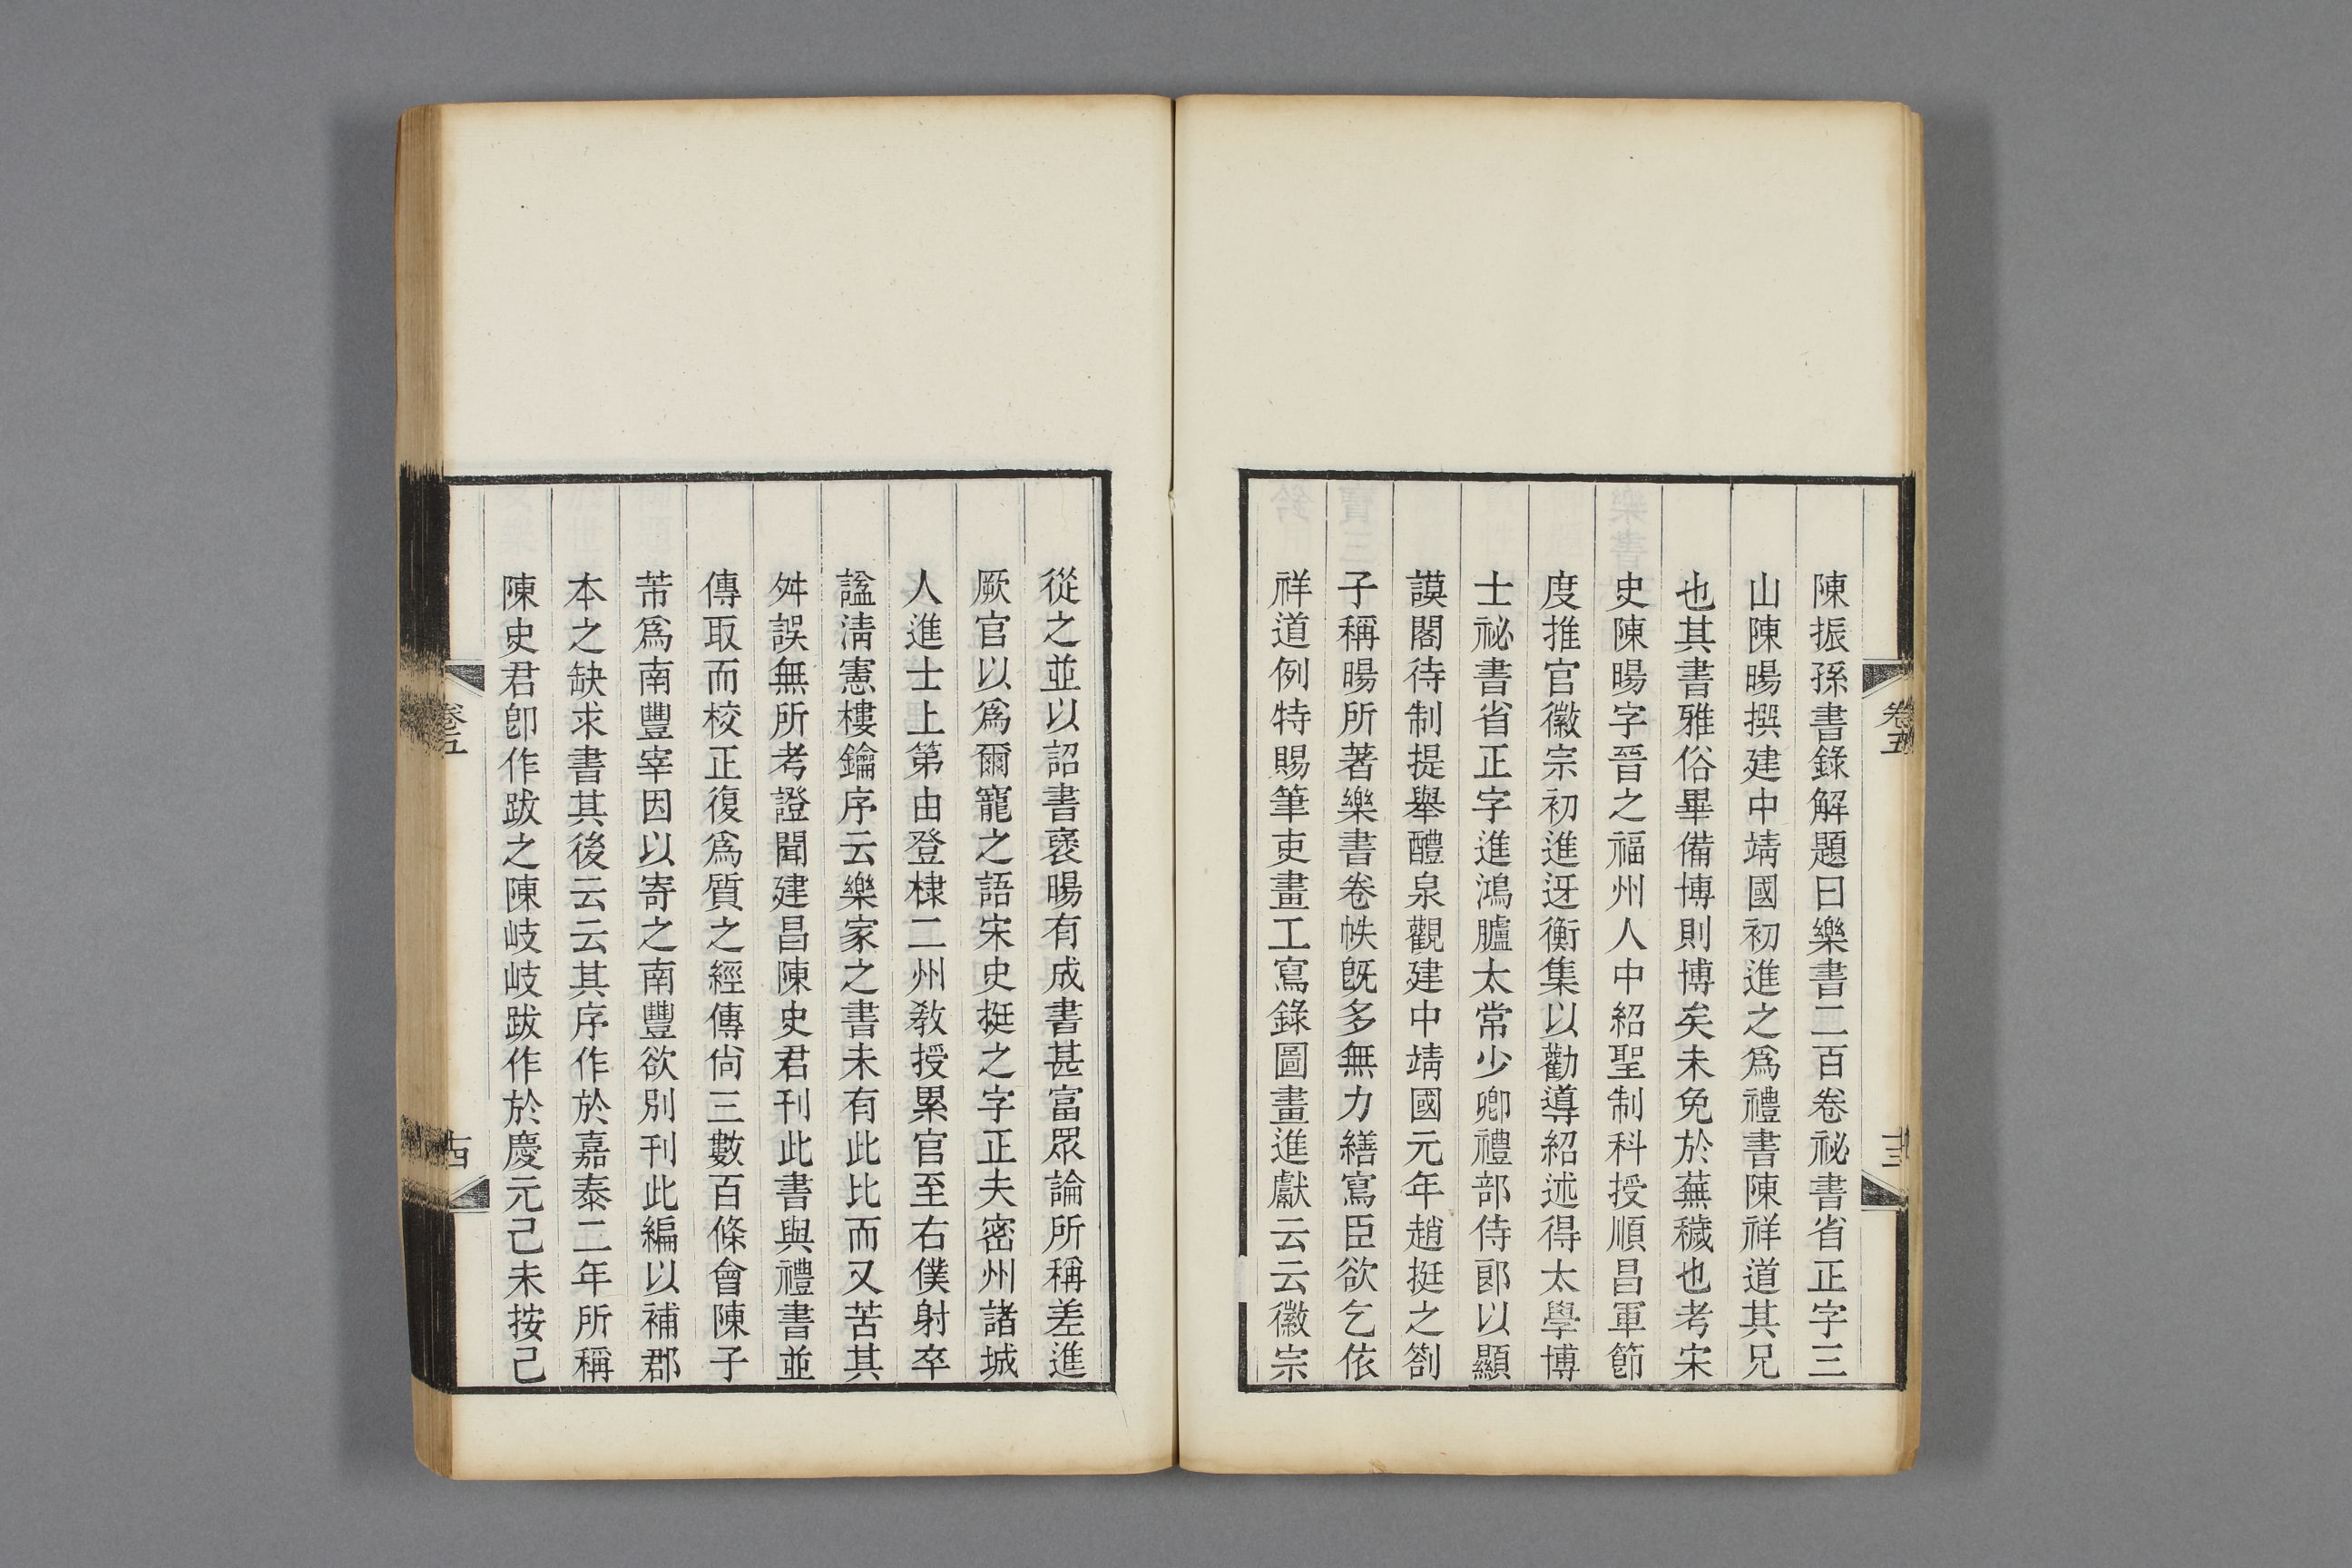 陳振孫書錄解題曰樂書二百卷祕書省正字三
山陳暘撰建中靖國初進之爲禮書陳祥道其兄
也其書雅俗畢備博則博矣未免於蕪穢也考宋
史陳暘字晉之福州人中紹聖制科授順昌軍節
度推官徽宗初進迓衡集以勸導紹述得太學博
士祕書省正字進鴻臚太常少卿禮部侍郎以顯
謨閣待制提舉醴泉觀建中靖國元年趙挺之劄
子稱暘所著樂書卷帙旣多無力繕寫臣欲乞依
祥道例特賜筆吏畫工寫錄圖畫進獻云云徽宗
卷五
十三
從之並以詔書襃暘有成書甚富眾論所稱差進
厥官以爲爾寵之語宋史挺之字正夫密州諸城
人進士上第由登棣二州教授累官至右僕射卒
諡淸憲樓鑰序云樂家之書未有此比而又苦其
舛誤無所考證聞建昌陳史君刊此書與禮書並
傳取而校正復爲質之經傳尙三數百條會陳子
芾爲南豐宰因以寄之南豐欲別刊此編以補郡
本之缺求書其後云云其序作於嘉泰二年所稱
陳史君卽作跋之陳岐岐跋作於慶元己未按己
卷五
十四